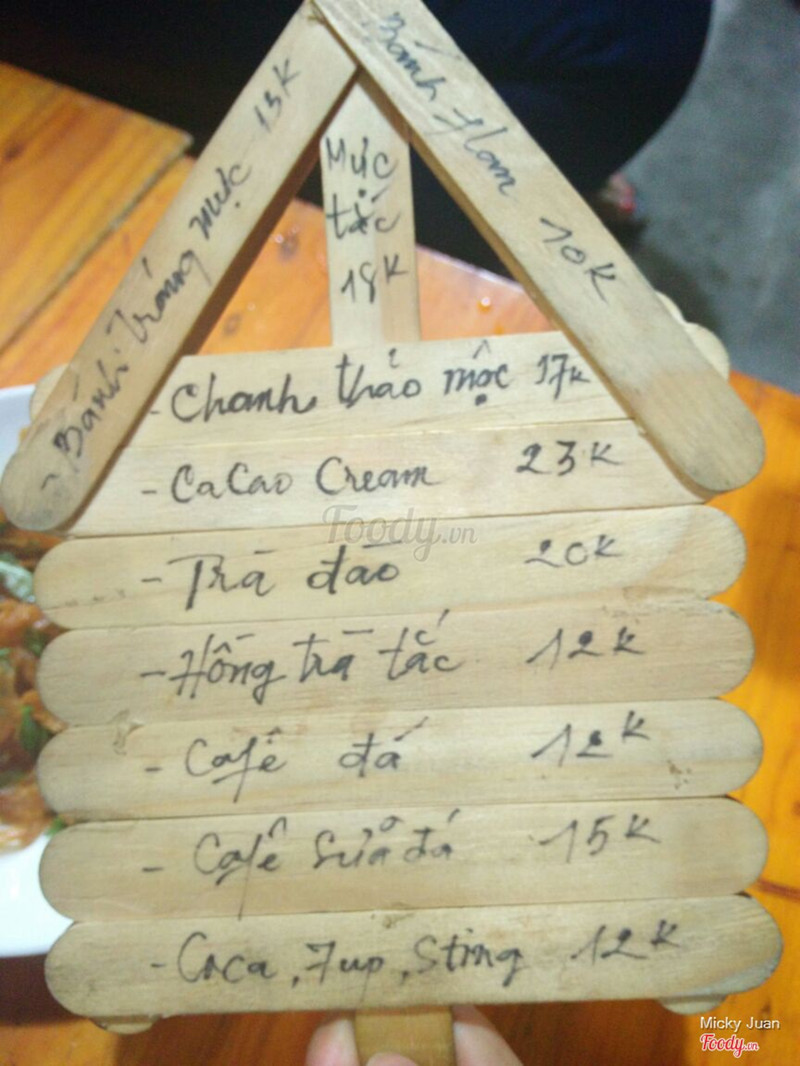 - Bánh Tráng mực 13K
Mực
tắc
18K
Bánh flan 10K
- Chanh thảo mộc 17K
- CaCao Cream 23K
- Trà đào 20K
- Hồng trà tắc 12K
- Cafê đá 12K
- Cafê sữa đá 15K
- Coca, 7up, Sting 12K
Foody.vn
Micky Juan
Foody.vn